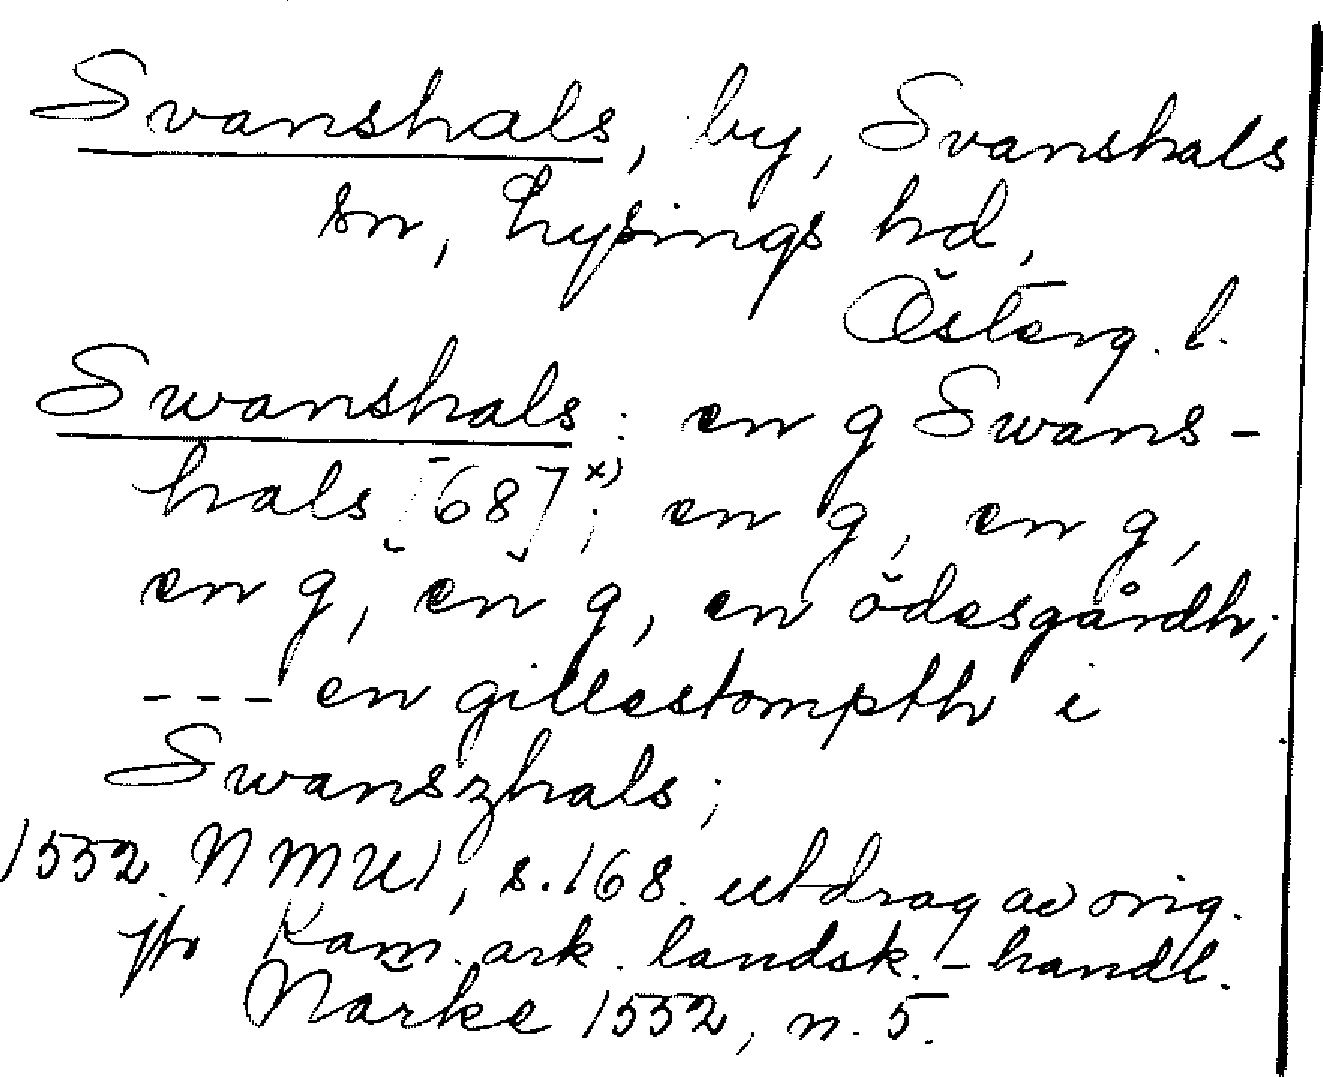 Svanshals, by, Svanshals
sn, Lysings hd,
Österg. l.
Swanshals: en g Swans-
hals [68]x); en g, en g,
en g, en g, en ödesgårdh;
--- en gillestompth i
Swanszhals;
1552. NMU1, s.168. utdrag av orig.
på Kam. ark. landsk.-handl.
Närke 1552, n. 5.